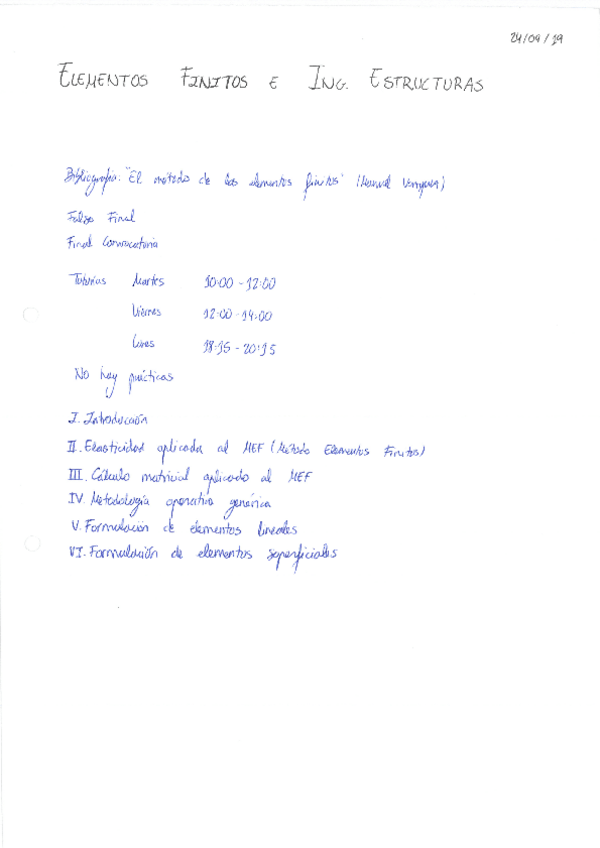 24/09/19
ELEMENTOS FINITOS E ING. ESTRUCTURAS
Bibliografía: "El método de los elementos finitos" (Manuel Vázquez)
Final
Final Convocatoria
Tutorías Martes 10:00 - 12:00
Viernes 12:00 - 14:00
Lunes 18:15 - 20:15
No hay prácticas
I. Introducción
II. Elasticidad aplicada al MEF (Método Elementos Finitos)
III. Cálculo matricial aplicado al MEF
IV. Metodología operativa genérica
V. Formulación de elementos lineales
VI. Formulación de elementos superficiales